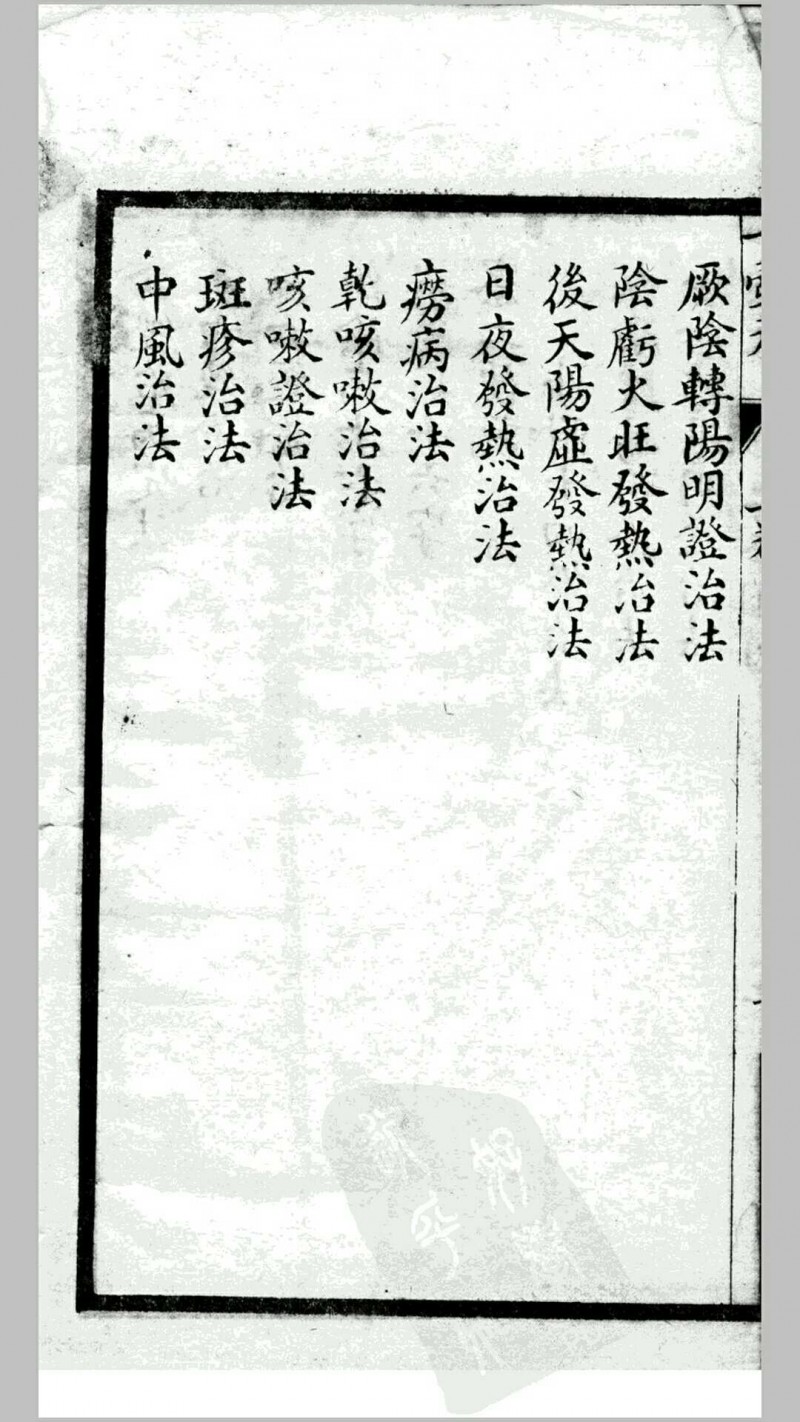 厥陰轉陽明證治法
陰虧火旺發熱治法
後天陽虛發熱治法
日夜發熱治法
癆病治法
乾咳嗽治法
咳嗽證治法
斑疹治法
中風治法